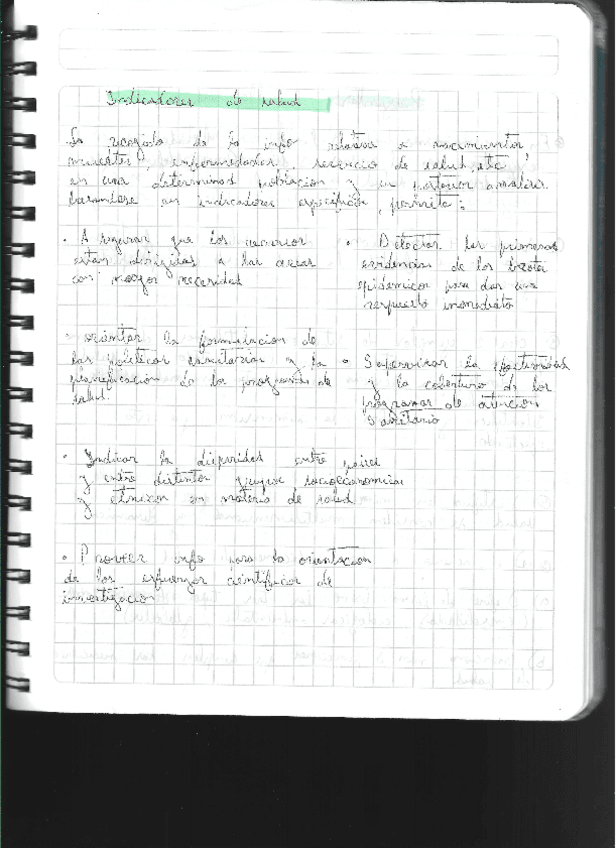 Indicadores de salud
La recogida de la info relativa a nacimientos,
muertes, enfermedades, servicio de salud, etc
en una determinada poblacion y su posterior analisis
basandose en indicadores especificos, permite:
• Asegurar que los recursos
estan dirigidos a las areas
con mayor necesidad
• Detectar las primeras
evidencias de los brotes
epidemicos para dar una
respuesta inmediata
• orientar la formulacion de
las politicas sanitarias y la
planificacion de los programas de
salud.
• Supervisar la efectividad
y la cobertura de los
programas de atencion
Sanitaria
• Indicar la disparidad entre paises
y entre distintos grupos socioeconomicos
y etnicos en materia de salud
• Proveer info para la orientacion
de los esfuerzos cientificos de
investigacion